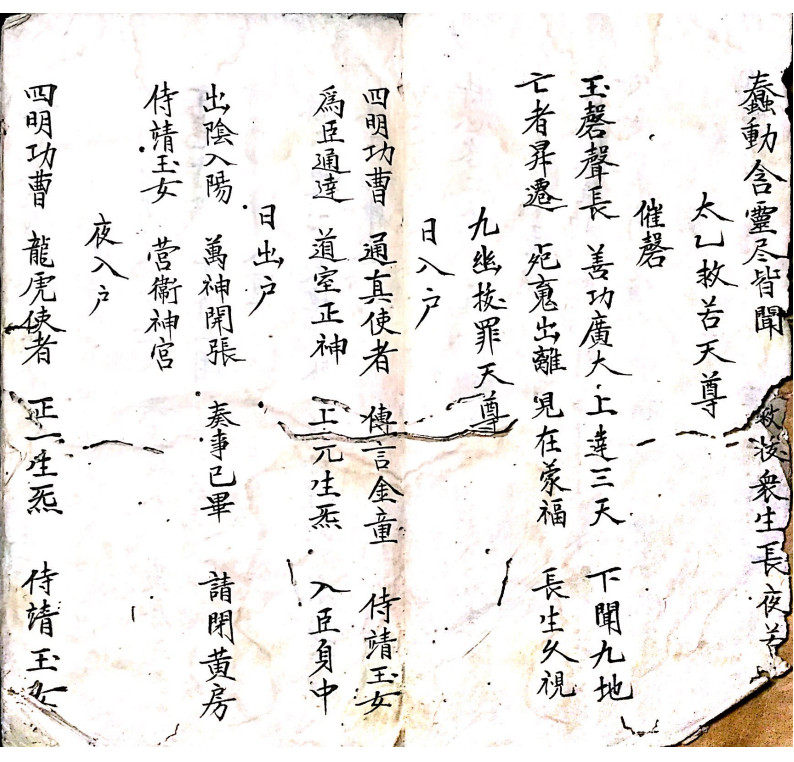 蠢動含靈尽皆聞 救拔衆生長夜苦
太乙救苦天尊
催磬
玉磬聲長 善功廣大 上達三天 下聞九地
亡者昇遷 㱡䰟出離 見在蒙福 長生久視
九幽拔罪天尊
日入户
四明功曹 通真使者 傳言金童 侍靖玉女
爲臣通達 道室正神 上元生炁 入臣身中
日出户
出陰入陽 萬神開張 奏事已畢 請閉黄房
侍靖玉女 营衛神宫
夜入户
四明功曹 龍虎使者 正一生炁 侍靖玉女